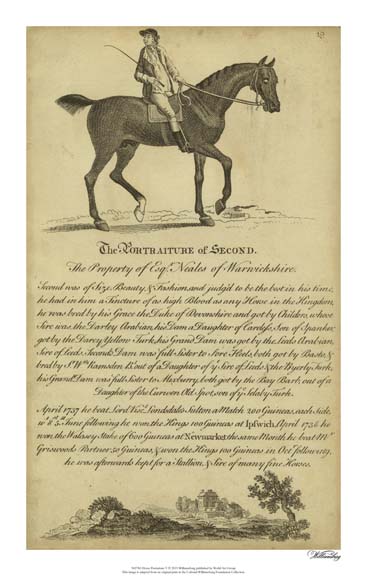 19
The PORTRAITURE of SECOND.
The Property of Esqr. Neales of Warwickshire.
Second was of Size, Beauty, & Fashion, and judg'd to be the best in his time,
he had in him a Tincture of as high Blood as any Horse in the Kingdom,
he was bred by his Grace the Duke of Devonshire and got by Childers, whose
Sire was the Darley Arabian, his Dam a Daughter of Son of Spanker
got by the Darcy Yellow Turk, his Grand Dam was got by the Leeds Arabian,
Sire of Leeds, Second's Dam was full Sister to Sore Heels, both got by Basto, &
bred by Sr. Wm. Ramsden B. out of a Daughter of ye Sire of Leeds & the Byerly Turk,
his Grand Dam was full Sister to both got by the Bay Barb, out of a
Daughter of the Curwen Old Spot son of ye Selaby Turk.
April 1737 he beat Lord Visc. Londsdales Sultan a Match 200 Guineas, each Side,
June following he won the Kings 100 Guineas at Ipswich, April 1738 he
won the Wallasey Stakes of 600 Guineas at Newmarket, the same Month he beat Mr.
Griswoods Partner 50 Guineas, & won the Kings 100 Guineas in Octr. following,
he was afterwards kept for a Stallion, & Sire of many fine Horses.
Williamsburg